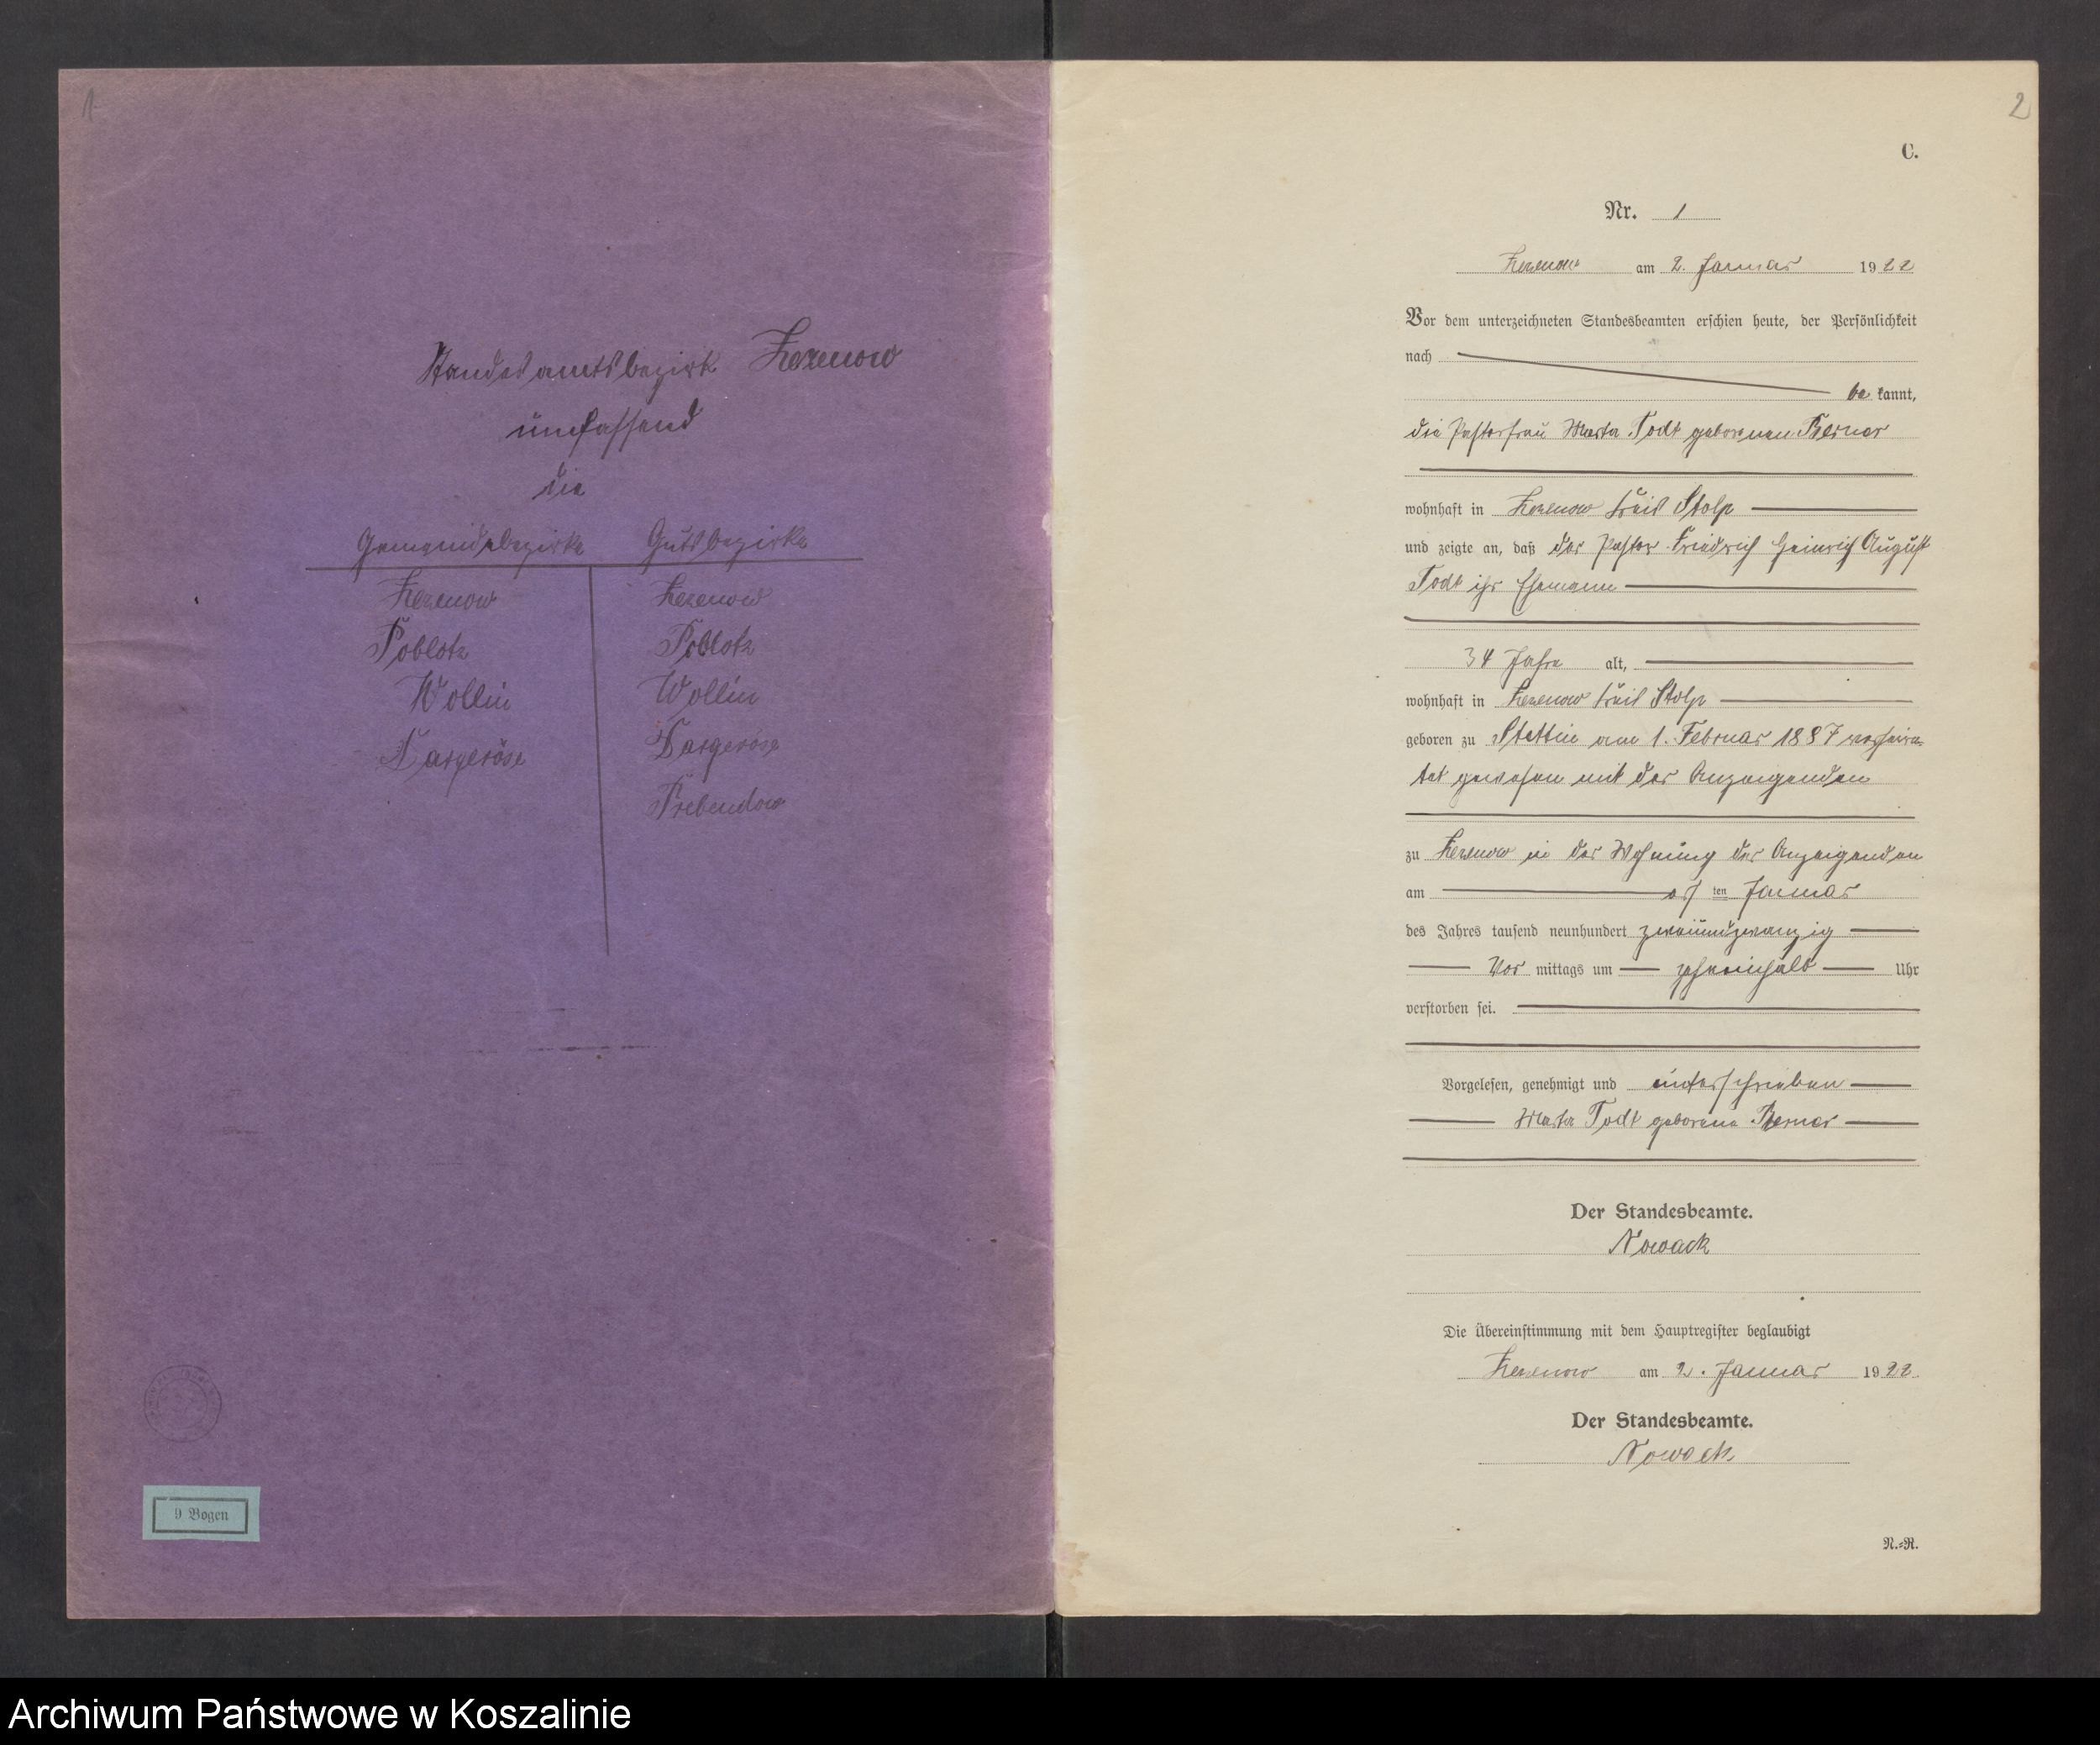 1
Standesamtsbezirk Zezenow
umfassend
die
Gemeindebezirke Gutsbezirke
Zezenow Zezenow
Poblotz Poblotz
Wollin Wollin
Dargeröse Dargeröse
Prebendow
9 Bogen
2
C.
Nr. 1
Zezenow am 2. Januar 1922
Vor dem unterzeichneten Standesbeamten erschien heute, der Persönlichkeit
nach
be kannt,
die Pastorfrau Marta Todt geborenen Berner
wohnhaft in Zezenow Kreis Stolp
und zeigte an, daß der Pastor Friedrich Heinrich August
Todt ihr Ehemann
34 Jahre alt,
wohnhaft in Zezenow Kreis Stolp
geboren zu Stettin am 1. Februar 1887 verheira-
tet gewesen mit der Anzeigenden
zu Zezenow in der Wohnung der Anzeigenden
am ers ten Januar
des Jahres tausend neunhundert zweiundzwanzig
Vor mittags um Uhr
verstorben sei.
Vorgelesen, genehmigt und unterschrieben
Marta Todt geborene Berner
Der Standesbeamte.
Nowack
Die Übereinstimmung mit dem Hauptregister beglaubigt
Zezenow am 2. Januar 1922
Der Standesbeamte.
Nowack
N.-R.
Archiwum Państwowe w Koszalinie